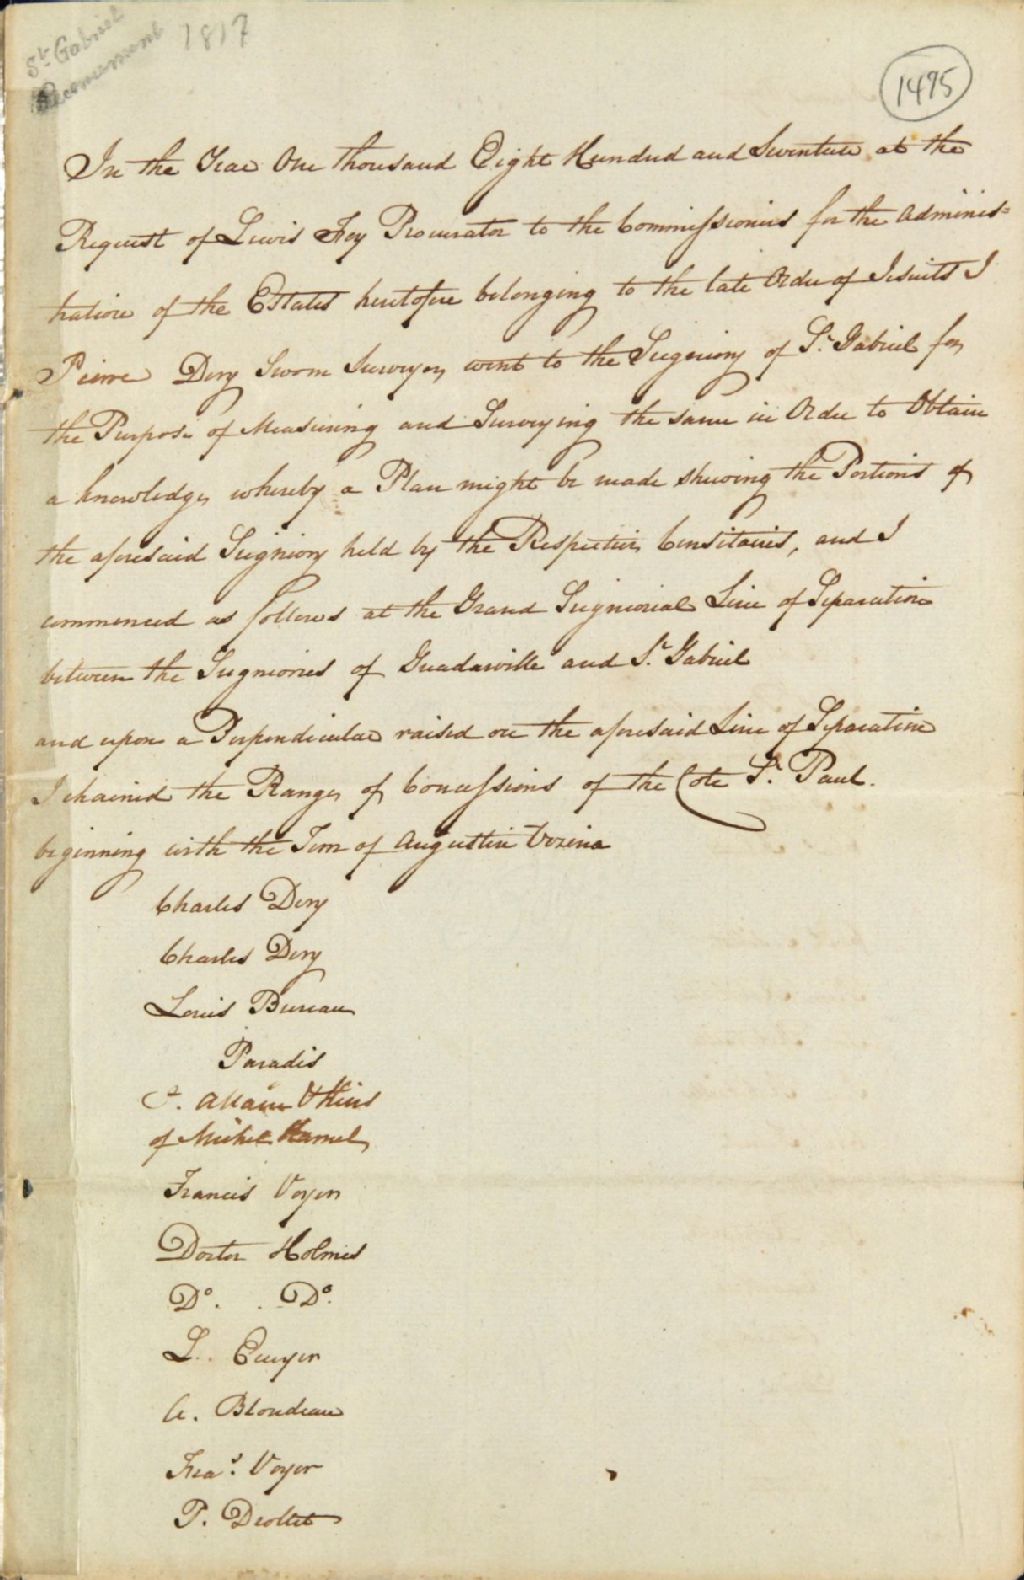 St Gabriel 1817
Recensement
1495
In the Year One thousand Eight Hundred and Seventeen at the
Request of Lewis Foy Procurator to the Commissioners for the Adminis=
tration of the Estates heretofore belonging to the late Order of Jesuits I
Pierre Dery Sworn Surveyor, went to the Seigniory of St. Gabriel for
the Purpose of Measuring and Surveying the same in Order to Obtain
a knowledge, whereby a Plan might be made shewing the Portions of
the aforesaid Seigniory held by the Respective Censitaires, and I
commenced as follows at the Grand Seigniorial Line of Separation
between the Seigniories of Guadarville and St. Gabriel
and upon a Perpendicular raised on the aforesaid Line of Separation
I chained the Range, of Concessions of the Cote St. Paul.
beginning with the Terre of Augustin Vezina
Charles Dery
Charles Dery
Louis Bureau
Paradis
J. Allain & heirs
of Michel Hamel,
Francis Voyer
Doctor Holmes
Do. . Do.
L. Envyer
A. Blondeau
Fras. Voyer
P. Drolet